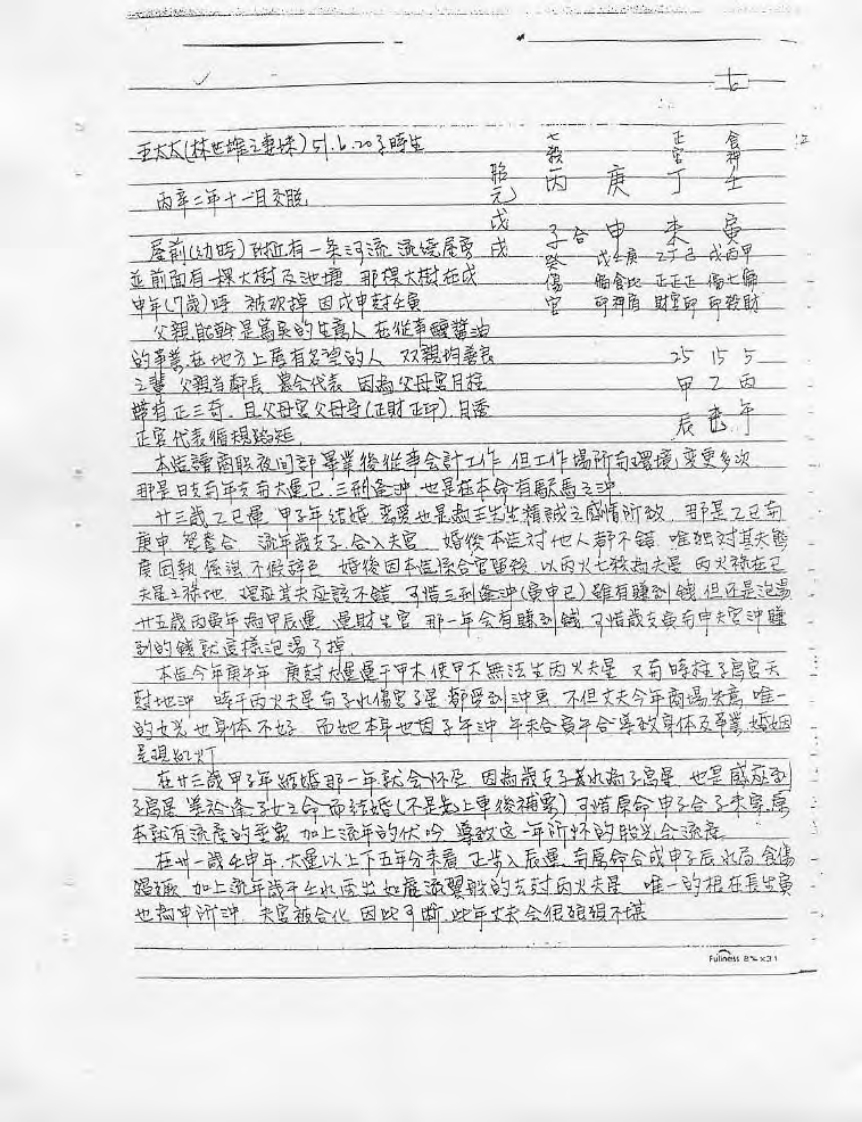 七
王太太(林世雄之專妹) 51.6.20子時生
丙辛二年十一月交脱
七殺 正官 食神
胎元 戊戌
丙 庚 丁 壬
子 合 申 未 寅
癸 戊壬庚 乙丁己 戊丙甲
傷官 偏印 食神 比肩 正財 正官 正印 偏印 七殺 偏財
25 15 5
甲 乙 丙
辰 巳 午
屋前(幼時)附近有一条河流 流繞屋旁
並前面有一棵大樹及池塘 那棵大樹在戊
申年(7歲)時 被砍掉 因戊申尅壬寅
父親能幹是篤實的生意人 在從事釀醬油
的事業 在地方上居有名望的人 双親均善良
之輩 父親当鄰長 農会代表 因為父母宮月柱
帶有正三奇 且父母宮父母守(正財正印) 月透
正官代表循規蹈矩
本造讀商職夜間部畢業後從事会計工作 但工作場所有環境變更多次
那是日支有年支有大運巳 三刑逢沖 也是在本命有馹馬之沖
廿三歲乙巳運 甲子年結婚 恋愛也是為王先生精誠之感情所致 那是乙巳有
庚申 鴛鴦合 流年歲支子 合入夫宮 婚後本造对他人都不錯 唯独对其夫態
度固執 倔強 不假辭色 婚後因本造係合官留殺 以丙火七殺為夫星 丙火祿在巳
夫星之祿地 理应其夫应該不錯 可惜三刑逢沖(寅申巳)雖有賺到錢 但还是泡湯
廿五歲丙寅年為甲辰運 運財生官 那一年会有賺到錢 可惜歲支寅有申夫宮沖 賺
到的錢就這樣泡湯了掉
本造今年庚午年 庚尅大運運干甲木 使甲木無法生丙火夫星 又有時柱子息宮天
尅地沖 時干丙火夫星有子水傷官子星 都受到沖尅 不但丈夫今年商場失意 唯一
的女兒也身体不好 而她本身也因子午沖 午未合寅午合 導致身体及事業 婚姻
呈現紅灯
在廿三歲甲子年結婚那一年就会怀孕 因為歲支子癸水為子息星 也是感应到
子息星 差於逢子女之命而結婚(不是先上車後補票) 可惜原命申子合子未害 原
本就有流產的垂象 加上流年的伏吟 導致这一年所怀的胎兒会流產
在卅一歲壬申年 大運以上下五年分来看 正步入辰運 有原命合成申子辰水局 食傷
猖獗 加上流年歲干壬水透出 如虎添翼般的去尅丙火夫星 唯一的根在長生寅
也為申所沖 夫宮被合化 因此可断 此年丈夫会很狼狽不堪
Fullness